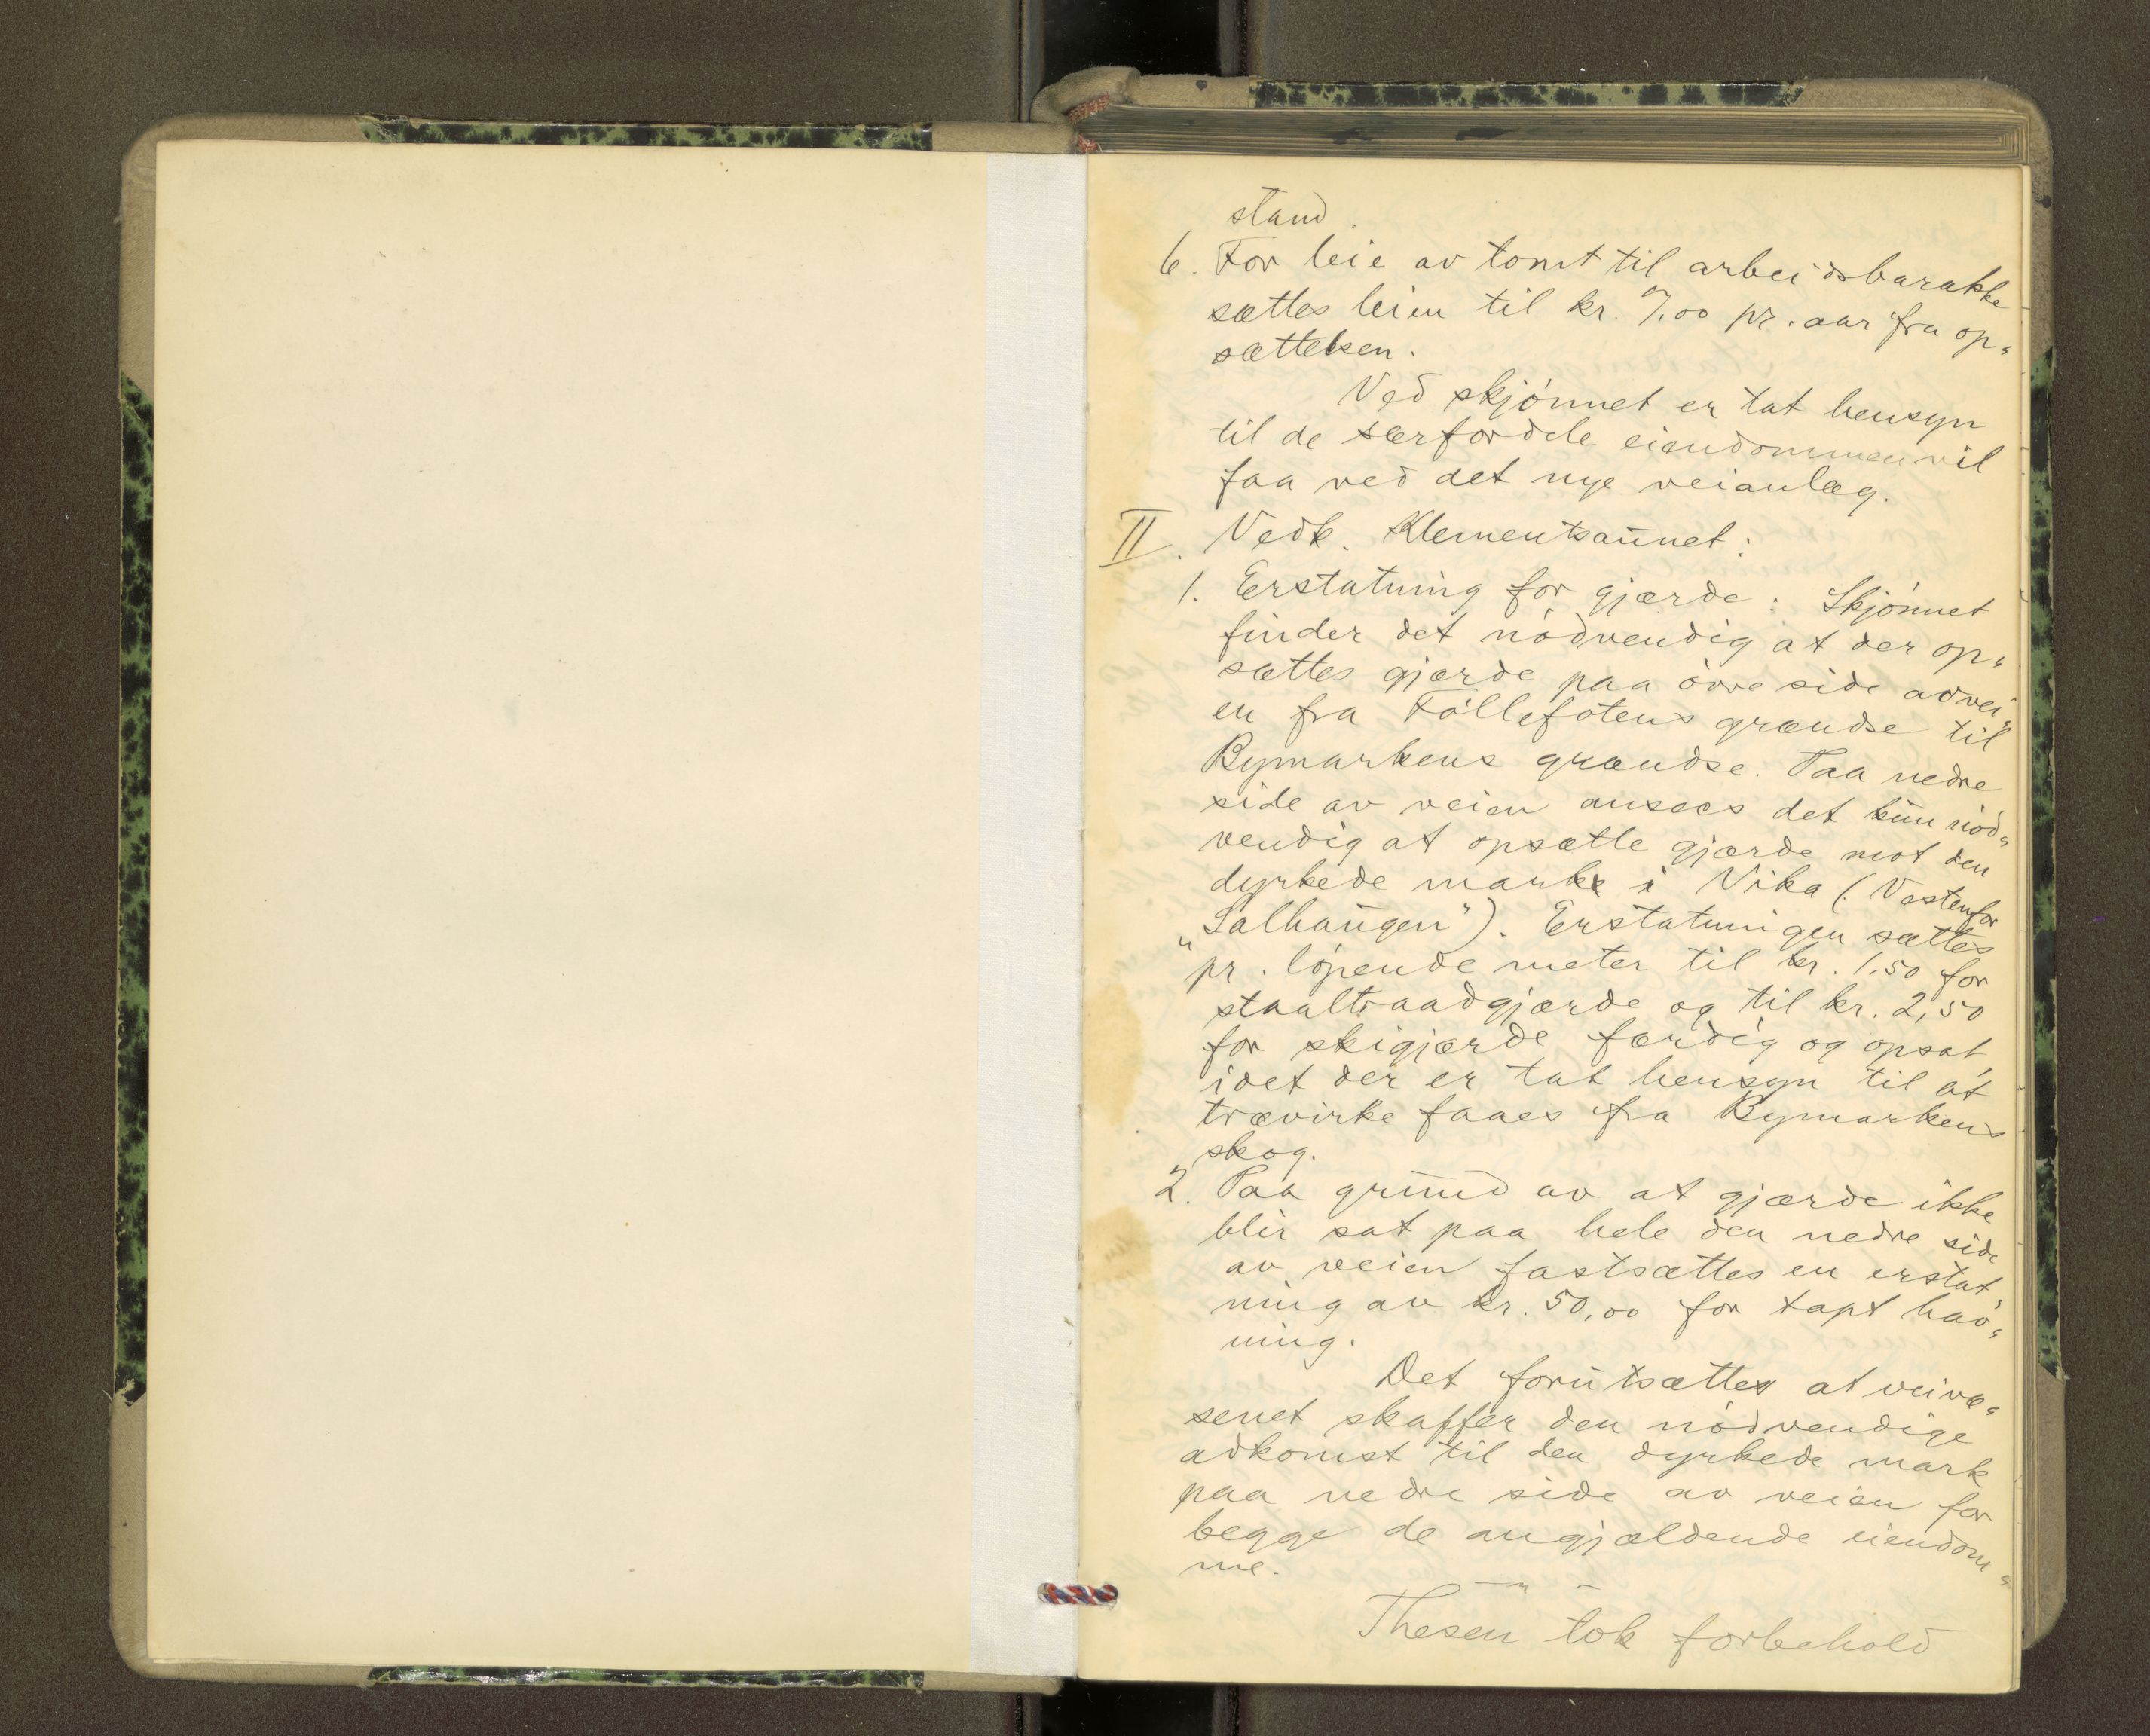 stand.
6. For leie av tomt til arbeidsbarakke
sættes leien til kr. 7,00 pr. aar fra op„
sættelsen.
Ved skjønnet er tat hensyn
til de særfordele eiendommen vil
faa ved det nye veianlæg.
II. Vedk. Klementsaunet:
1. Erstatning for gjærde: Skjønnet
finder det nødvendig at der op„
sættes gjærde paa øvre side av vei„
en fra Føllefotens grændse til
Bymarkens grændse. Paa nedre
side av veien ansees det kun nød„
vendig at opsætte gjærde mot den
dyrkede mark i Vika (Vestenfor
„Salhaugen"). Erstatningen sættes
pr. løpende meter til kr. 1.50 for
staaltraadgjærde og til kr. 2,50
for skigjærde færdig og opsat,
idet der er tat hensyn til at
trævirke faaes fra Bymarkens
skog.
2. Paa grund av at gjærde ikke
blir sat paa hele den nedre side
av veien fastsættes en erstat„
ning av kr. 50,00 for tapt hav„
ning.
Det forutsættes at veivæ„
senet skaffer den nødvendige
adkomst til den dyrkede mark
paa nedre side av veien for
begge de angjældende eiendom„
me.
— " —
Thesen tok forbehold